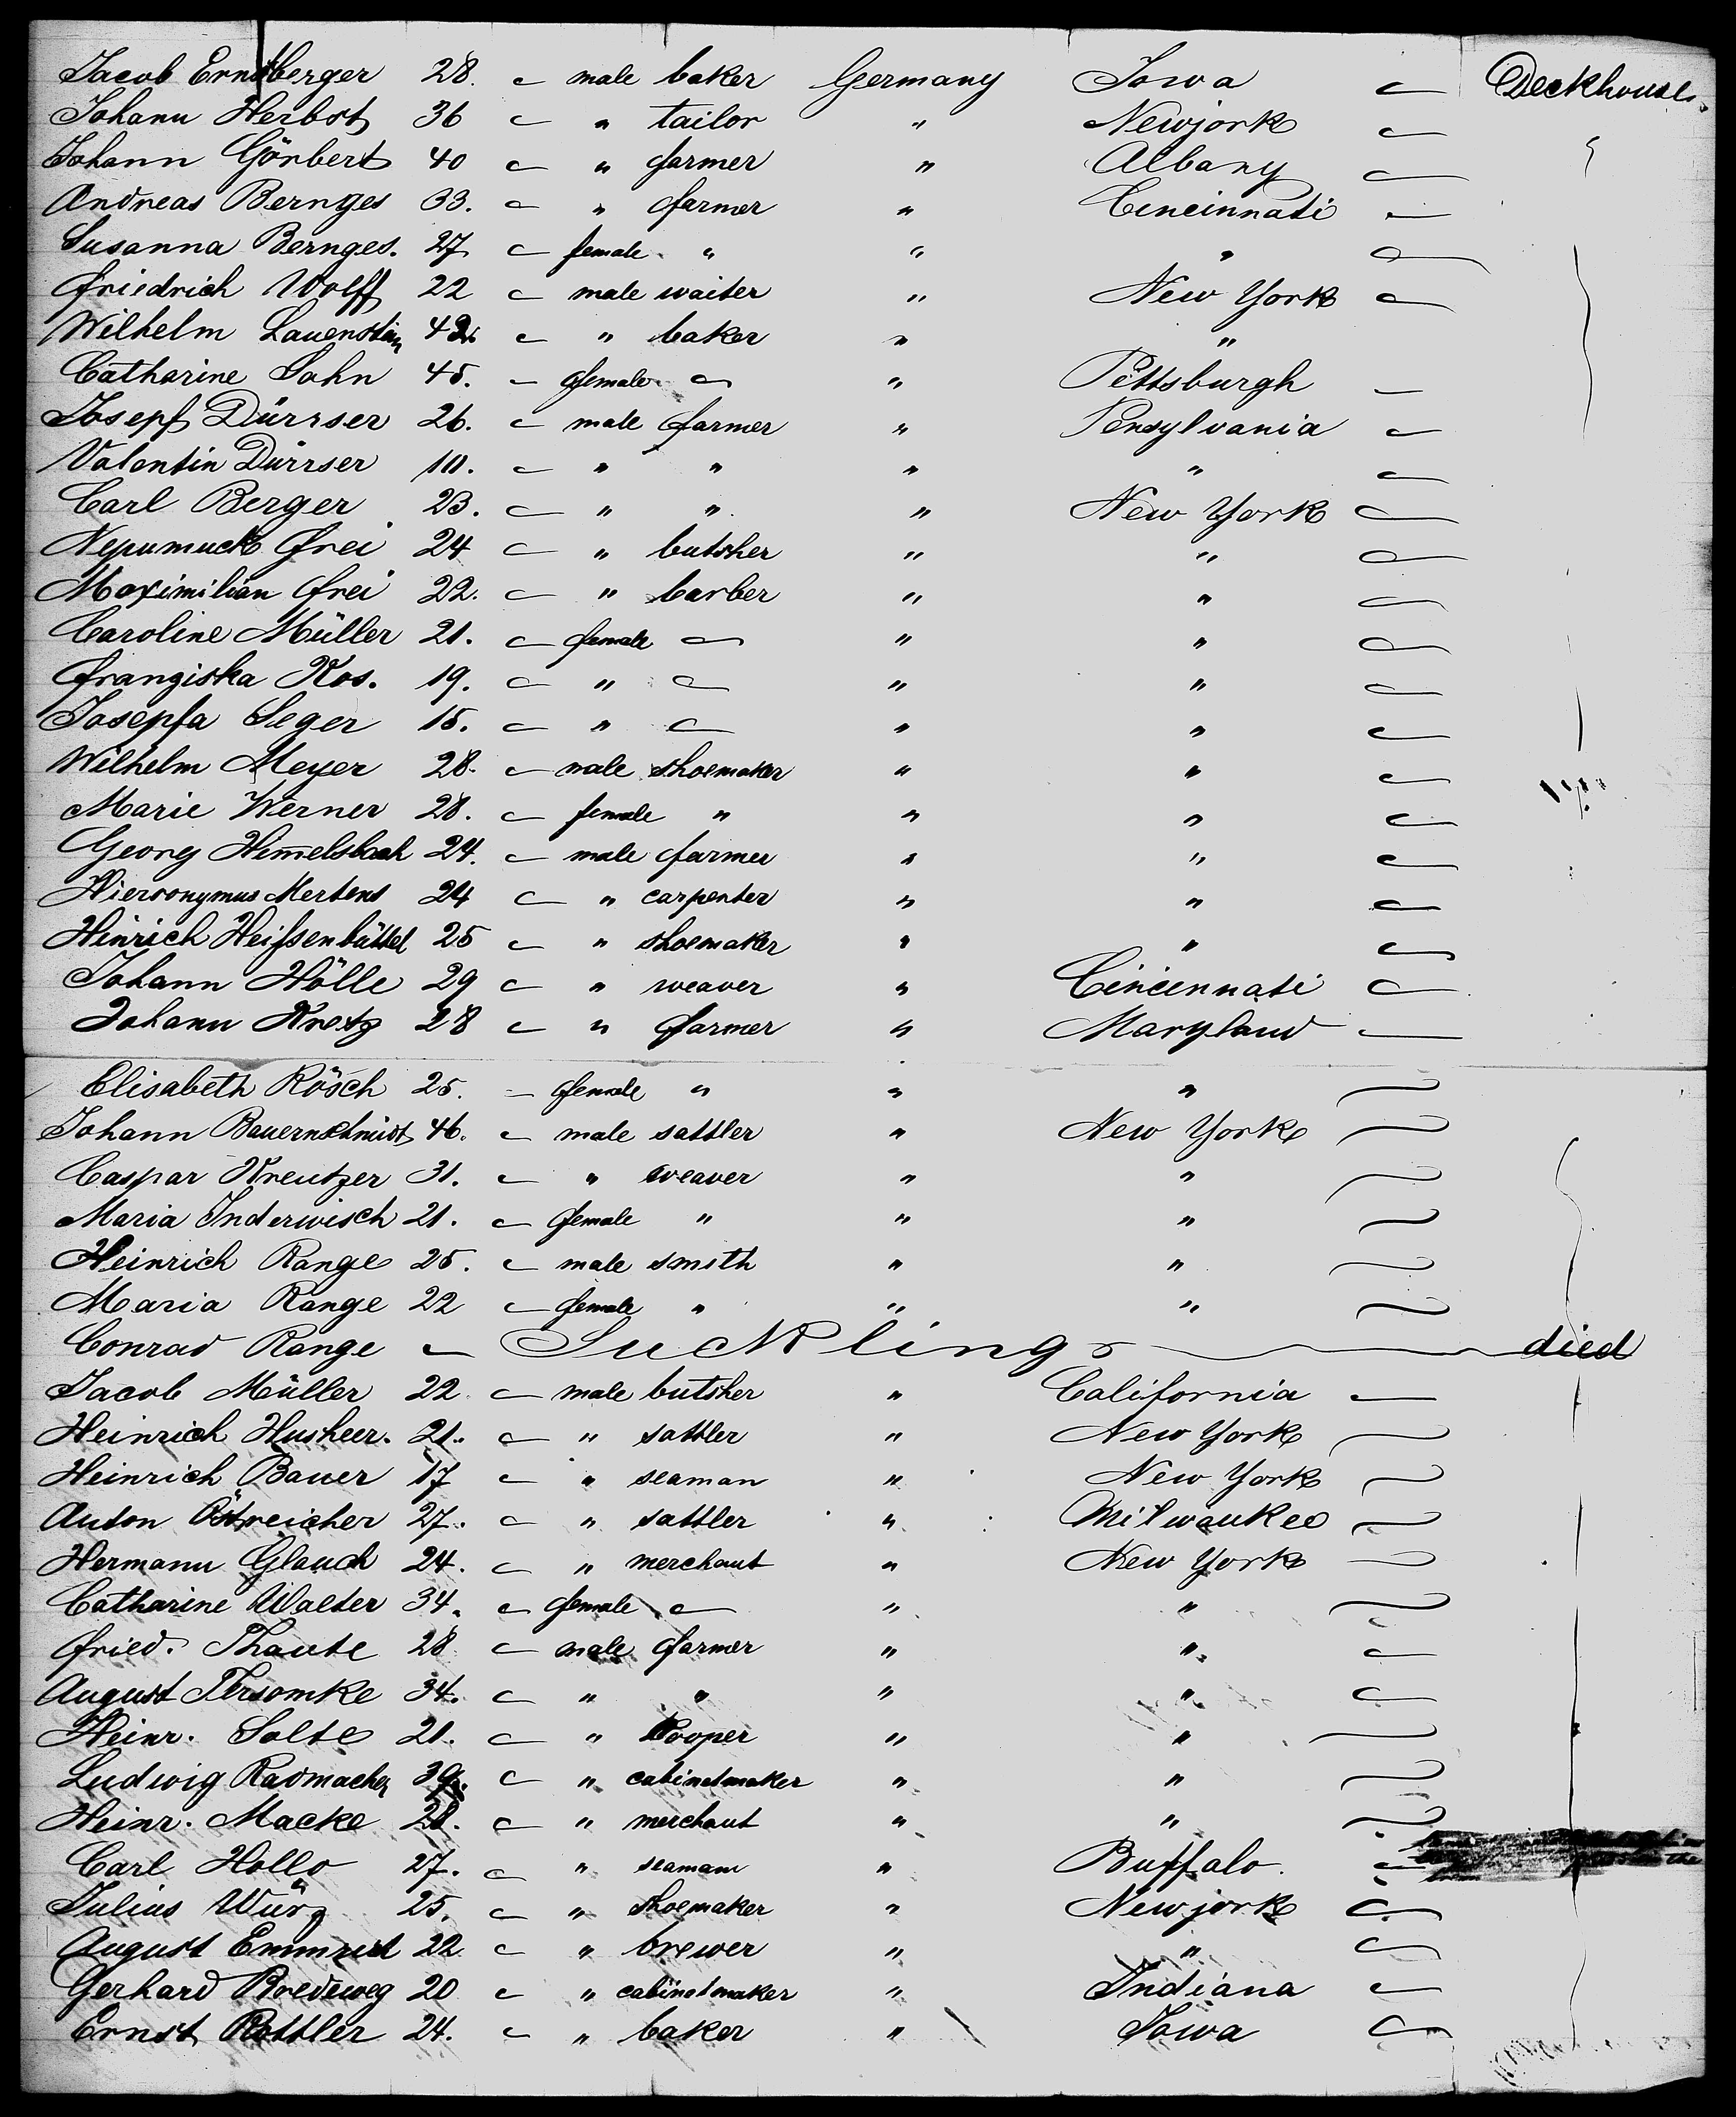 Jacob Ernstberger 28. — male baker Germany Iowa — Deckhouse.
Johann Herbst 36 — " tailor " Newjork —
Johann Görbert 40 — " farmer " Albany —
Andreas Bernges 33. — " farmer " Cincinnati —
Susanna Bernges. 27 — female " " " —
Friedrich Wolff 22 — male waiter " New York —
Wilhelm Lauenstein 42. — " baker " "
Catharine Sohn 45. — female — " Pittsburgh —
Josepf Dürrser 26. — male farmer " Pensylvania —
Valentin Dürrser 10. — " " " " —
Carl Berger 23. — " " " New York —
Nepumuck Frei 24 — " butsher " " —
Maximilian Frei 22. — " barber " " —
Caroline Müller 21. — female — " " —
Franziska Kos. 19. — " — " " —
Josepfa Seger 15. — " — " " —
Wilhelm Meyer 28. — male shoemaker " " —
Marie Werner 28. — female " " " —
Georg Himmelsbach 24. — male farmer " " —
Hieronymus Mertens 24 — " carpenter " " —
Hinrich Heißenbüttel 25 — " shoemaker " " —
Johann Hölle 29 — " weaver " Cincinnati —
Johann Kretz 28 — " farmer " Maryland —
Elisabeth Rösch 25. — female " " " —
Johann Bauernschmidt 46. — male sattler " New York —
Caspar Kreutzer 31. — " weaver " " —
Maria Inderwisch 21. — female " " " —
Heinrich Range 25. — male smith " " —
Maria Range 22 — female " " " —
Conrad Range — Suckling — died
Jacob Müller 22 — male butsher " California —
Heinrich Husheer. 21. — " sattler " New York —
Heinrich Bauer 17 — " seaman " New York —
Anton Östreicher 27. — " sattler " Milwaukee —
Hermann Glauch 24. — " merchant " New York —
Catharine Walter 34. — female — " " —
Fried. Thaute 28 — male farmer " " —
August Tersomke 34. — " " " " —
Heinr. Solte 21. — " Cooper " " —
Ludwig Radmacher 39. — " cabinetmaker " " —
Heinr. Macke 28. — " merchant " " —
Carl Hollo 27. — " seamam " Buffalo. —
Julius Würz 25. — " shoemaker " Newjork —
August Emmrich 22. — " brewer " " —
Gerhard Bredeweg 20 — " cabinetmaker " Indiana —
Ernst Rottler 24. — " baker " Iowa —